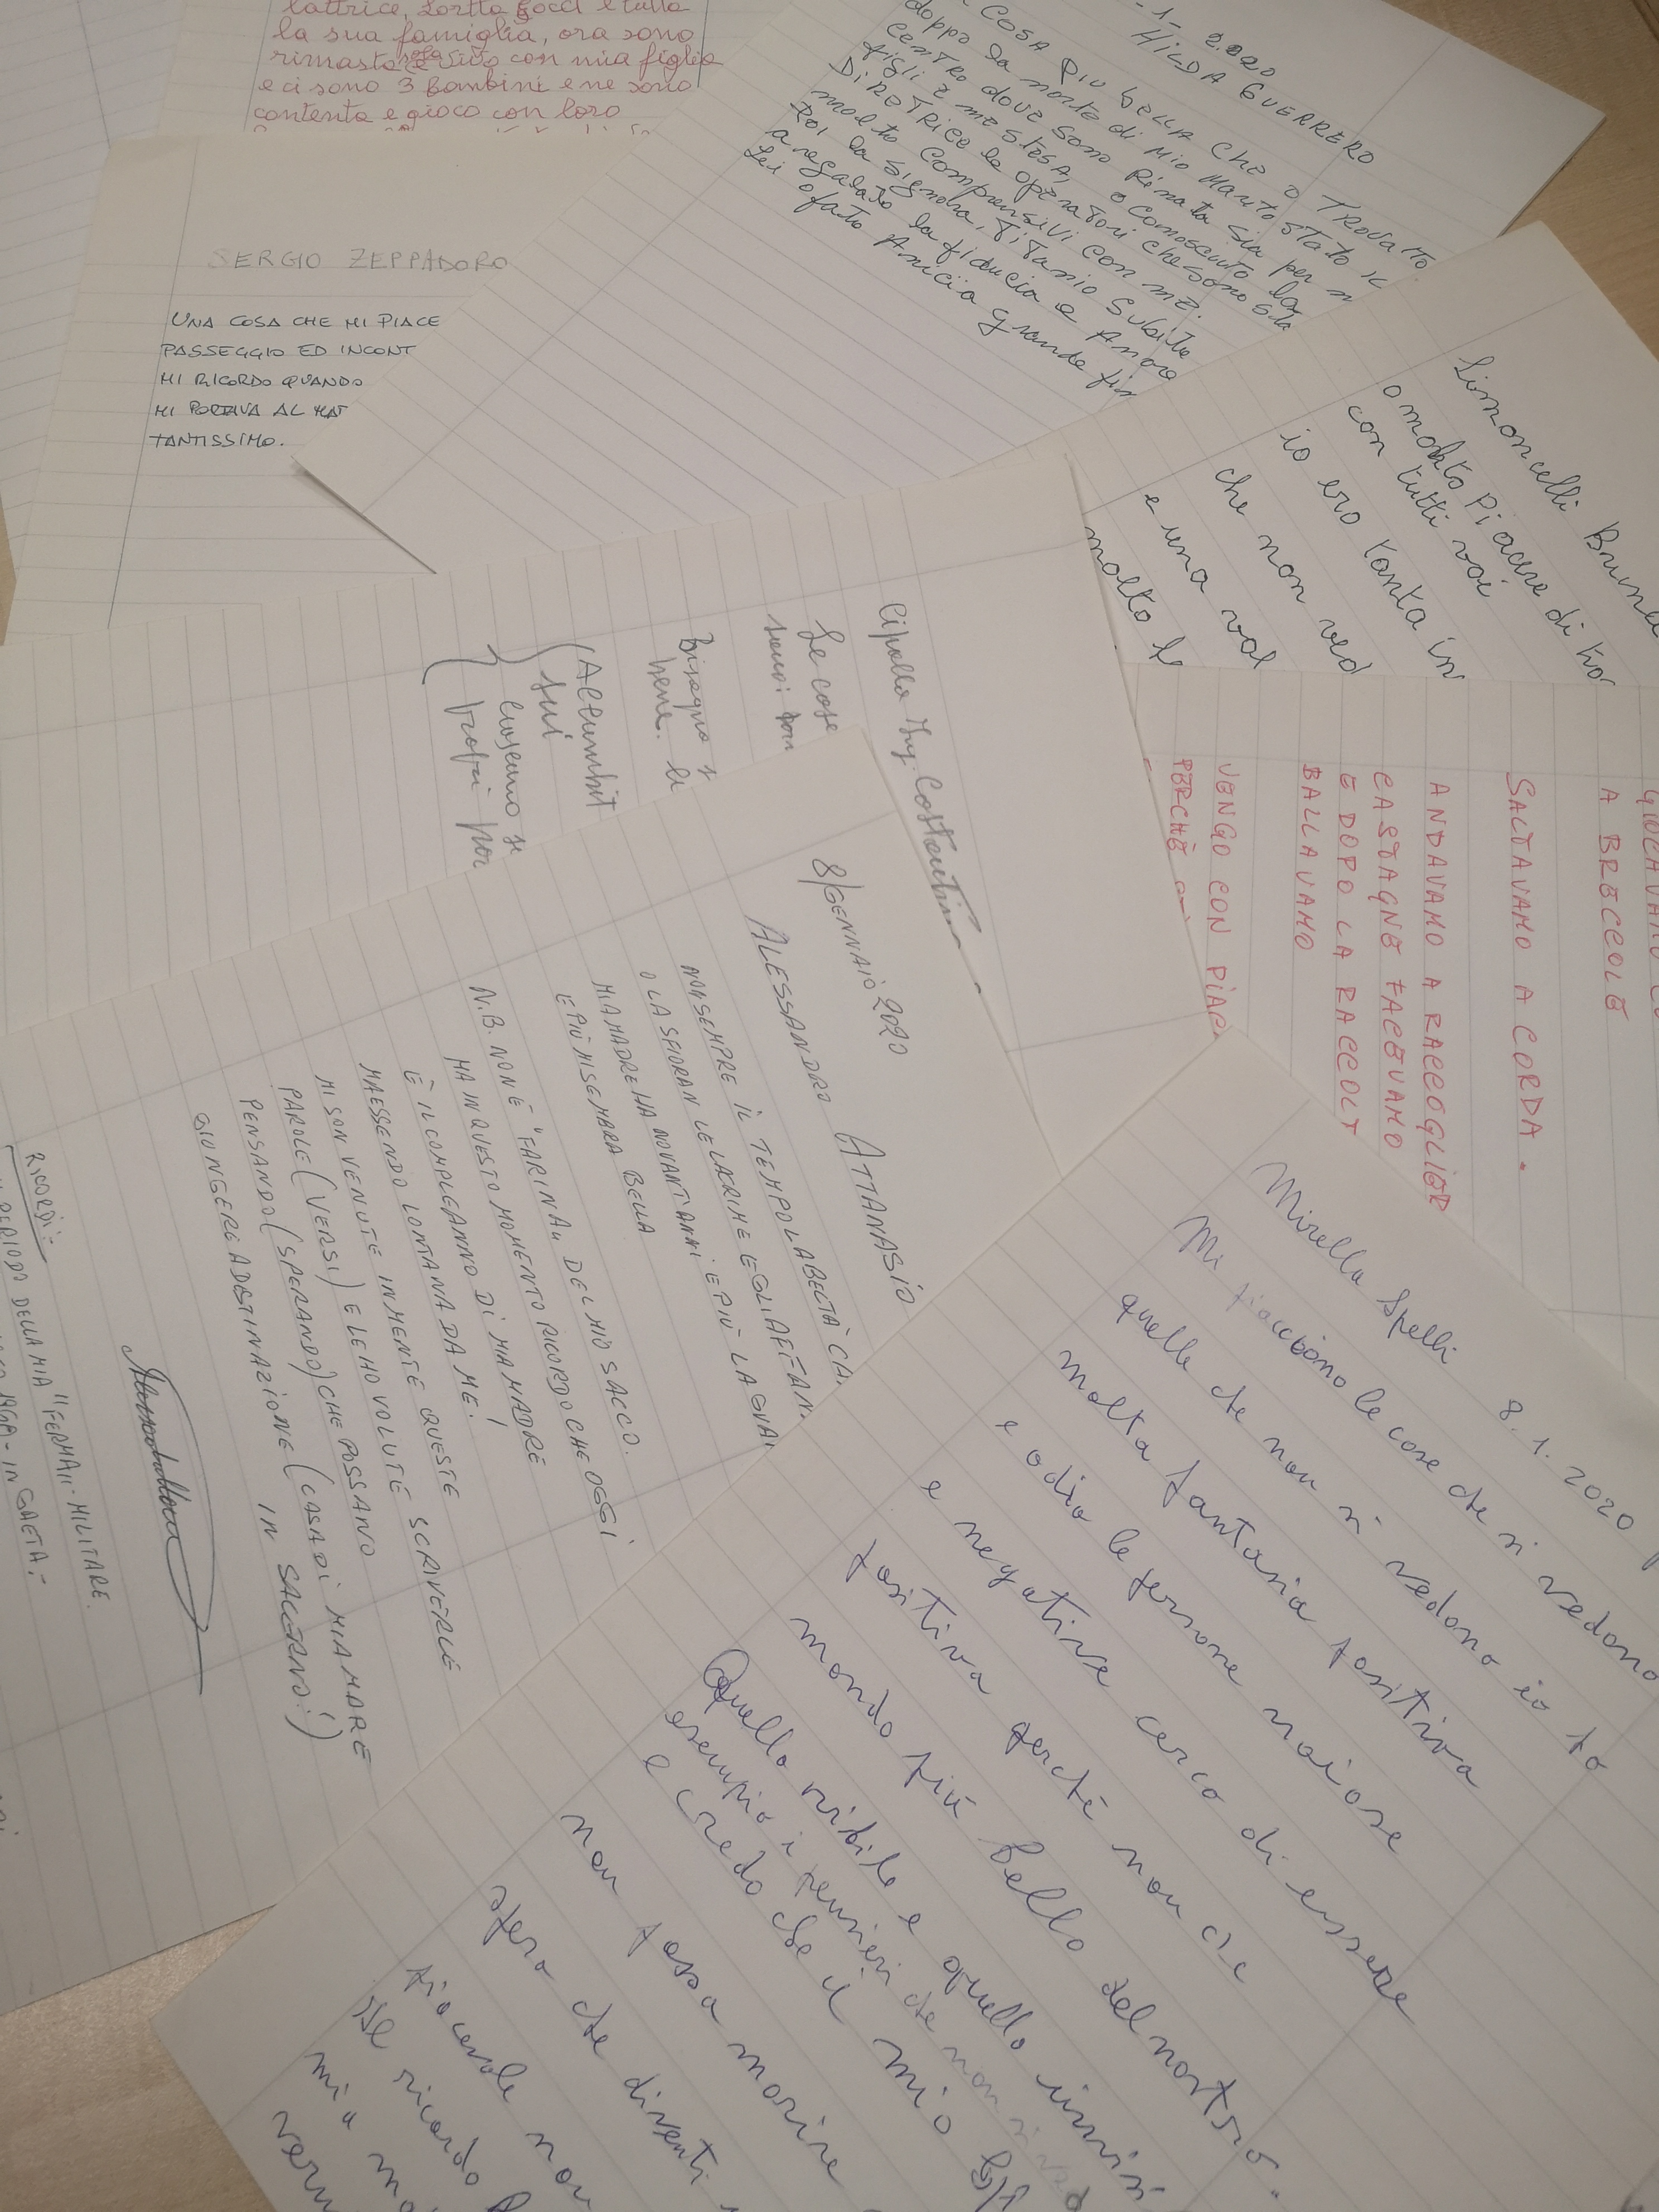 lattrice, Loretta Gocci e tutta
la sua famiglia, ora sono
rimasto e vivo con mia figlia
e ci sono 3 bambini e ne sono
contenta e gioco con loro
SERGIO ZEPPADORO
UNA COSA CHE MI PIACE
PASSEGGIO ED INCONT
MI RICORDO QUANDO
MI PORTAVA AL MAT
TANTISSIMO.
-1- 2020
HILDA GUERRERO
COSA PIU BELLA CHE O TROVATO
doppo la morte di mio Marito stato il
CENTRO dove sono Rinata sia per m
figli e me stessa, o conosciuto la
DIRETRICE le operatori che sono sta
molto comprensivi con me.
Poi la signora, Titanio Subito
a regalato la fiducia e Amore
Lei o fato Amicia grande fin
Limoncelli Bruna
o molto Piacere di tro
con tutti voi
io ero tanta in
che non ved
e una vol
molto le
Cipolla Ing. Costantino
Le cose
sono:
Bisogna s
bene. le
(Accumbit
sui
Cuseno se
profri por
GIOCAVAMO CO
A BRECCOLE
SALTAVAMO A CORDA.
ANDAVAMO A RACCOGLIER
CASTAGNE FACEVAMO
E DOPO LA RACCOLT
BALLAVAMO
VENGO CON PIAC
PERCHÈ
8/GENNAIO 2020
ALESSANDRO ATTANASIO
NON SEMPRE IL TEMPO LA BELTÀ CA
O LA SFIORAN LE LACRIME E GLI AFFAN
MIA MADRE HA NOVANT'ANNI E PIÙ LA GUAR
E PIÙ MI SEMBRA BELLA
N.B. NON È "FARINA" DEL MIO SACCO.
MA IN QUESTO MOMENTO RICORDO CHE OGGI
È IL COMPLEANNO DI MIA MADRE
MA ESSENDO LONTANA DA ME!
MI SON VENUTE IN MENTE QUESTE
PAROLE (VERSI) E LE HO VOLUTE SCRIVERLE
PENSANDO (SPERANDO) CHE POSSANO
GIUNGERE A DESTINAZIONE (CASA DI MIA MADRE
IN SALERNO!)
RICORDI:-
PERIODO DELLA MIA "FERMA" MILITARE.
IN GAETA.-
Mirella Spelli 8.1.2020
Mi piacciono le cose che si vedono
quelle che non si vedono io ho
molta fantasia positiva
e odio le persone noiose
e negative cerco di essere
positiva perché non c'è
mondo più bello del nostro.
Quello visibile e quello invisi
esempio i pensieri che non si
e credo che il mio
non possa morire
spero che diventi
piacevole non
Se ricordo
mia